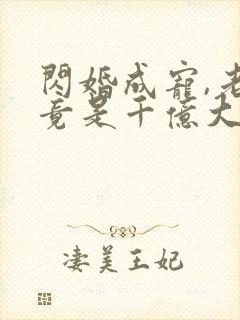 閃婚成寵,老
竟是千億大
淒美王妃